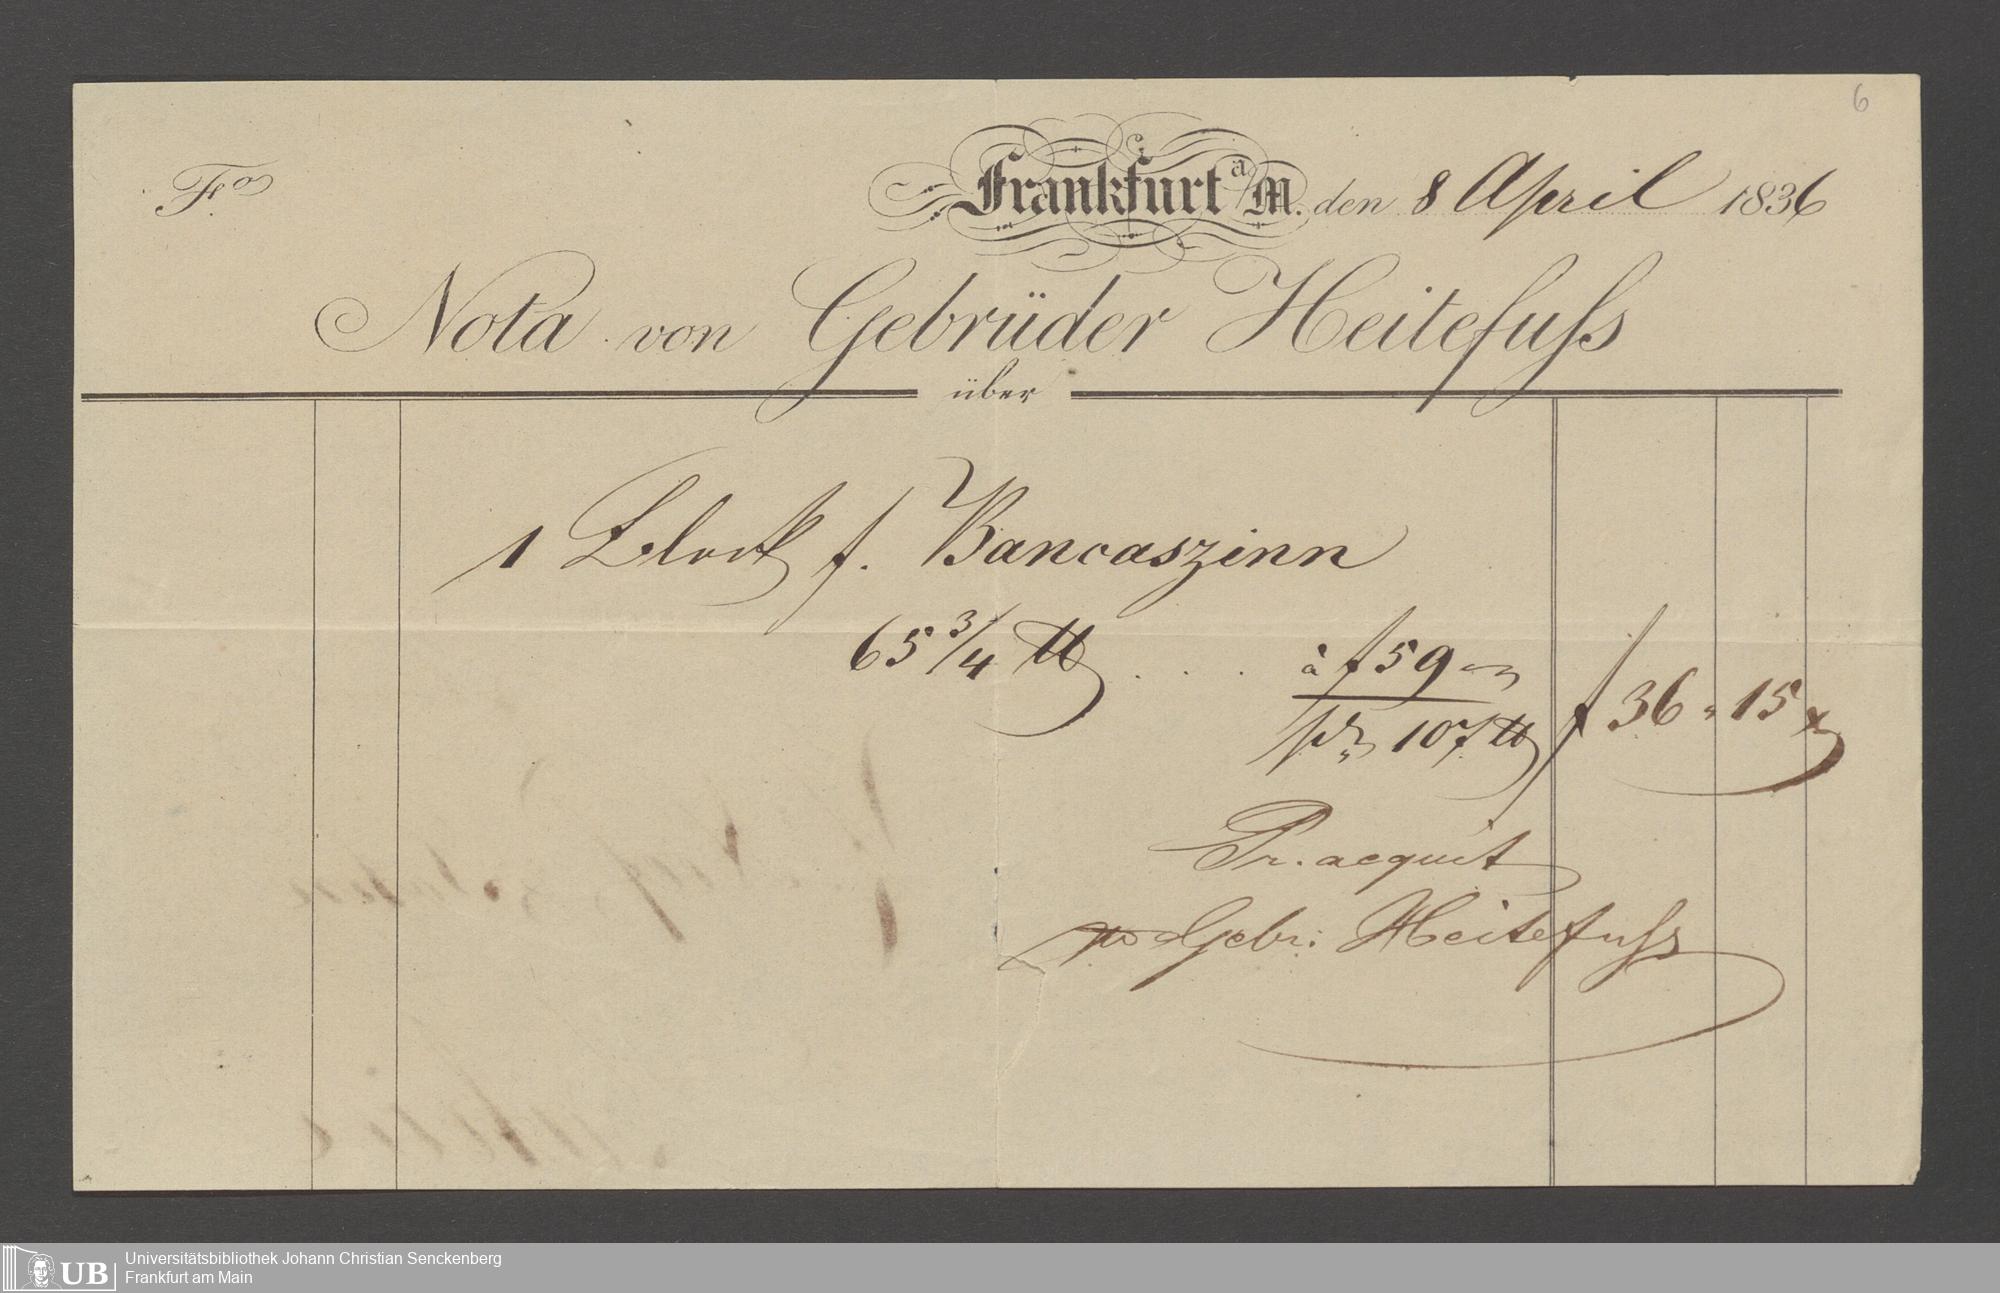 6
Fº
Frankfurt a/M. den 8 April 1836
Nota von Gebrüder Heitefuſs
über
1 Block f. Bancaszinn
65 3/4 ℔ . . . à f 59
pr 107 ℔ f 36 " 15 x
Pr. acquit
pp Gebr: Heitefuſs
UB
Universitätsbibliothek Johann Christian Senckenberg
Frankfurt am Main